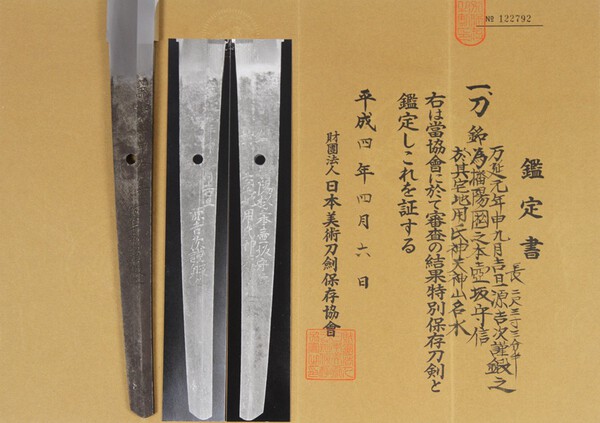 № 122792
鑑定書
一、刀 銘 為播陽國之本壺坂守信
於其宅地用氏神天神山名水
万延元年申九月吉旦源吉次謹鍛之
右は當協會に於て審査の結果特別保存刀剣と
鑑定しこれを証する
平成四年四月六日
財團法人 日本美術刀剣保存協會